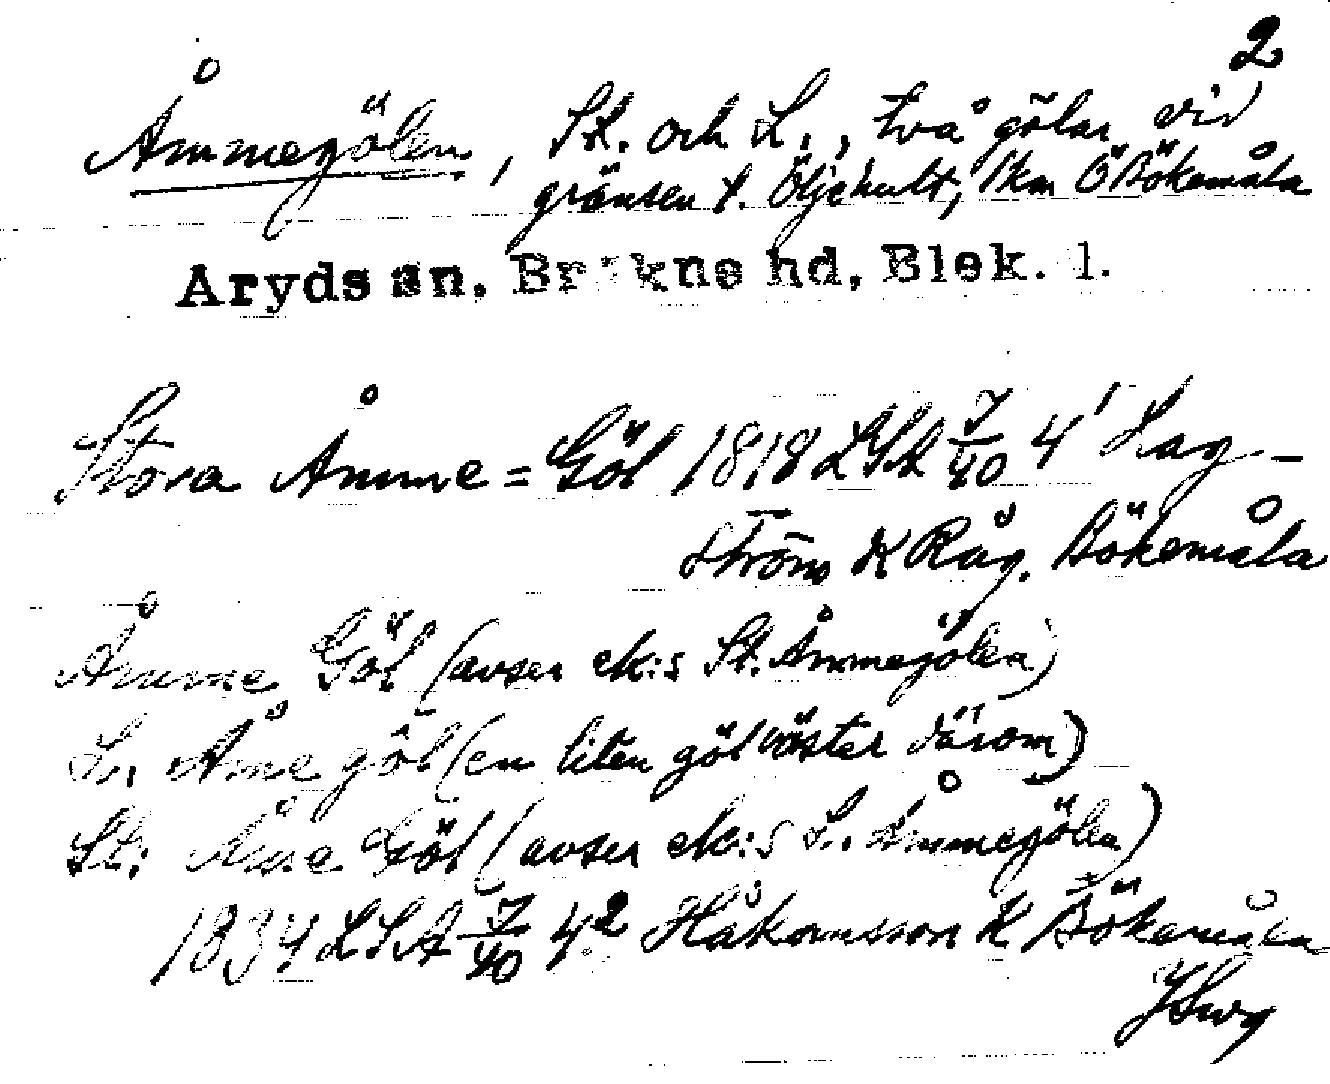 2
Åmmegölen, St. och L., två gölar vid
gränsen t. Öljehult, 1 km Ö Bökemåla
Aryds sn, Bräkne hd, Blek. l.
Stora Åmme=Göl 1818 LSA J/40 4¹ Lag-
ström K Råg. Bökemåla
Åmme Göl (avser ek:s St. Åmmegölen)
L. Åme göl (en liten göl väster därom)
St: Åme Göl (avser ek:s L. Åmmegölen)
1834 LSA J/40 4² Håkansson K Bökemåla